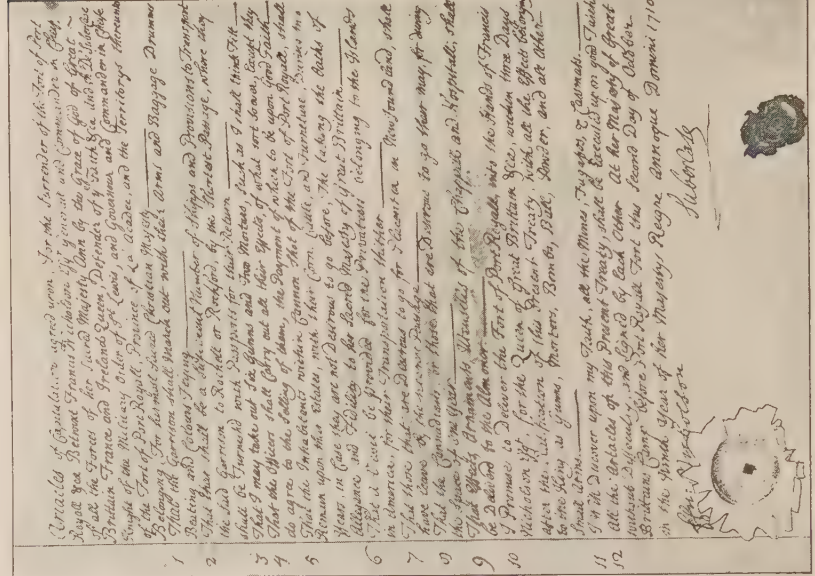 Articles of Capitulation agreed upon for the Surrender of the Fort of Port
Royall &ca Betwixt Francis Nicholson Esqr General and Commander in Chief
of all the Forces of her Sacred Majesty Ann by the Grace of God of Great
Brittain France and Ireland Queen, Defender of ye Faith &ca And Mr De Subercase
Knight of the Military Order of St Lewis, and Governour and Commander in Chief
of the Fort of Port Royall Province of La Accadie, and the Territorys thereunto
Belonging for his most Sacred Christian Majesty
1 That the Garrison shall March out with their Arms and Baggage Drumms
Beating and Colours Flying
2 That there shall be a sufficient Number of Shipps and Provisions to Transport
the said Garrison to Rochell or Rochford, by the Shortest Passage, where they
shall be Furnished with Passports for their Return
3 That I may take out Six Gunns and Two Mortars, Such as I shall think Fitt
4 That the Officers shall Carry out all their Effects, of what sort soever, Except they
do agree to the Selling of them, the Payment of which to be upon Good Faith
5 That the Inhabitants within Cannon Shot of the Fort of Port Royall, shall
Remain upon their Estates, with their Corn, Cattle and Furniture, During two
Years, in Case they are not Desirous to go before, The taking the Oaths of
Allegiance and Fidelity to her Sacred Majesty of Great Brittain
6 That a be provided for the Privatiers belonging to the Islands
in America, for their Transportation thither
7 That those that are Desirous to go for Placentia in Newfoundland, shall
have Leave by the nearest Passage
8 That the Cannadians, or those that are Desirous to go there may, for during
the Space of one Year
9 That Effects, Ornaments, Utensills of the Chappell and Hospitall, shall
be Delivered to the Almoner
10 I Promise to Deliver the Fort of Port Royall, into the Hands of Francis
Nicholson Esqr for the Queen of Great Brittain &ca, within three Days
after the Ratification of this Present Treaty, with all the Effects belonging
to the King, as Gunns, Mortars, Bombs, Ball, Powder, and all other
Small Arms
11 I will Discover upon my Faith, all the Mines, Fugasses, & Casemats.
12 All the Articles of this Present Treaty, shall be Executed upon good Faith
without Difficulty, and Signed by Each Other At her Majesty of Great
Brittains Camp before Port Royall Fort this Second Day of October
in the Ninth Year of Her Majestys Reigne Annoque Domini 1710
Fra: Nicholson
Subercase